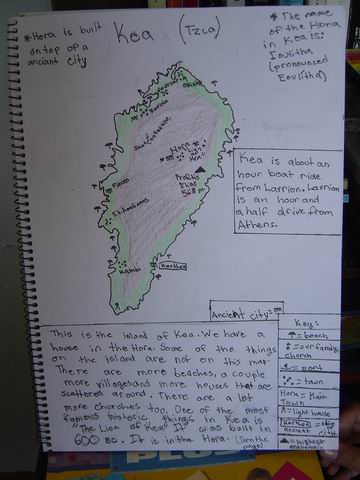 *Hora is built
on top of a
ancient city
Kea (Tzia)
* The name
of the Hora
in Kea is:
Ioulitha
(pronounced
Eoulitha)
Hora *
Lion
Kea"
Profitis
Elias
568 m
Pisses
Kambi
Karthea
Kea is about an
hour boat ride
from Lavrion. Lavrion
is an hour and
a half drive from
Athens.
Ancient city=
This is the island of Kea. We have a
house in the Hora. Some of the things
on the island are not on this map.
There are more beaches, a couple
more villages and more houses that are
scattered around. There are a lot
more churches too. One of the most
famous historic things in Kea is
"The Lion of Kea". It was built in
600 BC. It is in the Hora. (Turn the
page)
Key:
=beach
=our family
church
=port
=town
Hora = Main
Town
=light house
Karthea
ancient city
=highest
mountain